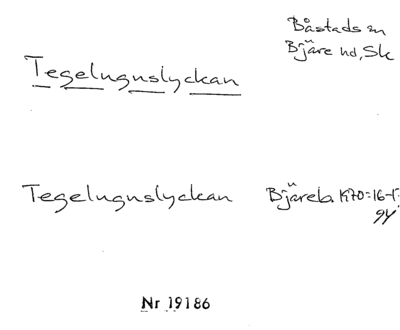 Båstads sn
Bjäre hd, Sk
Tegelugnslyckan
Tegelugnslyckan Bjäreb. K70:16-17,
94
Nr 19186